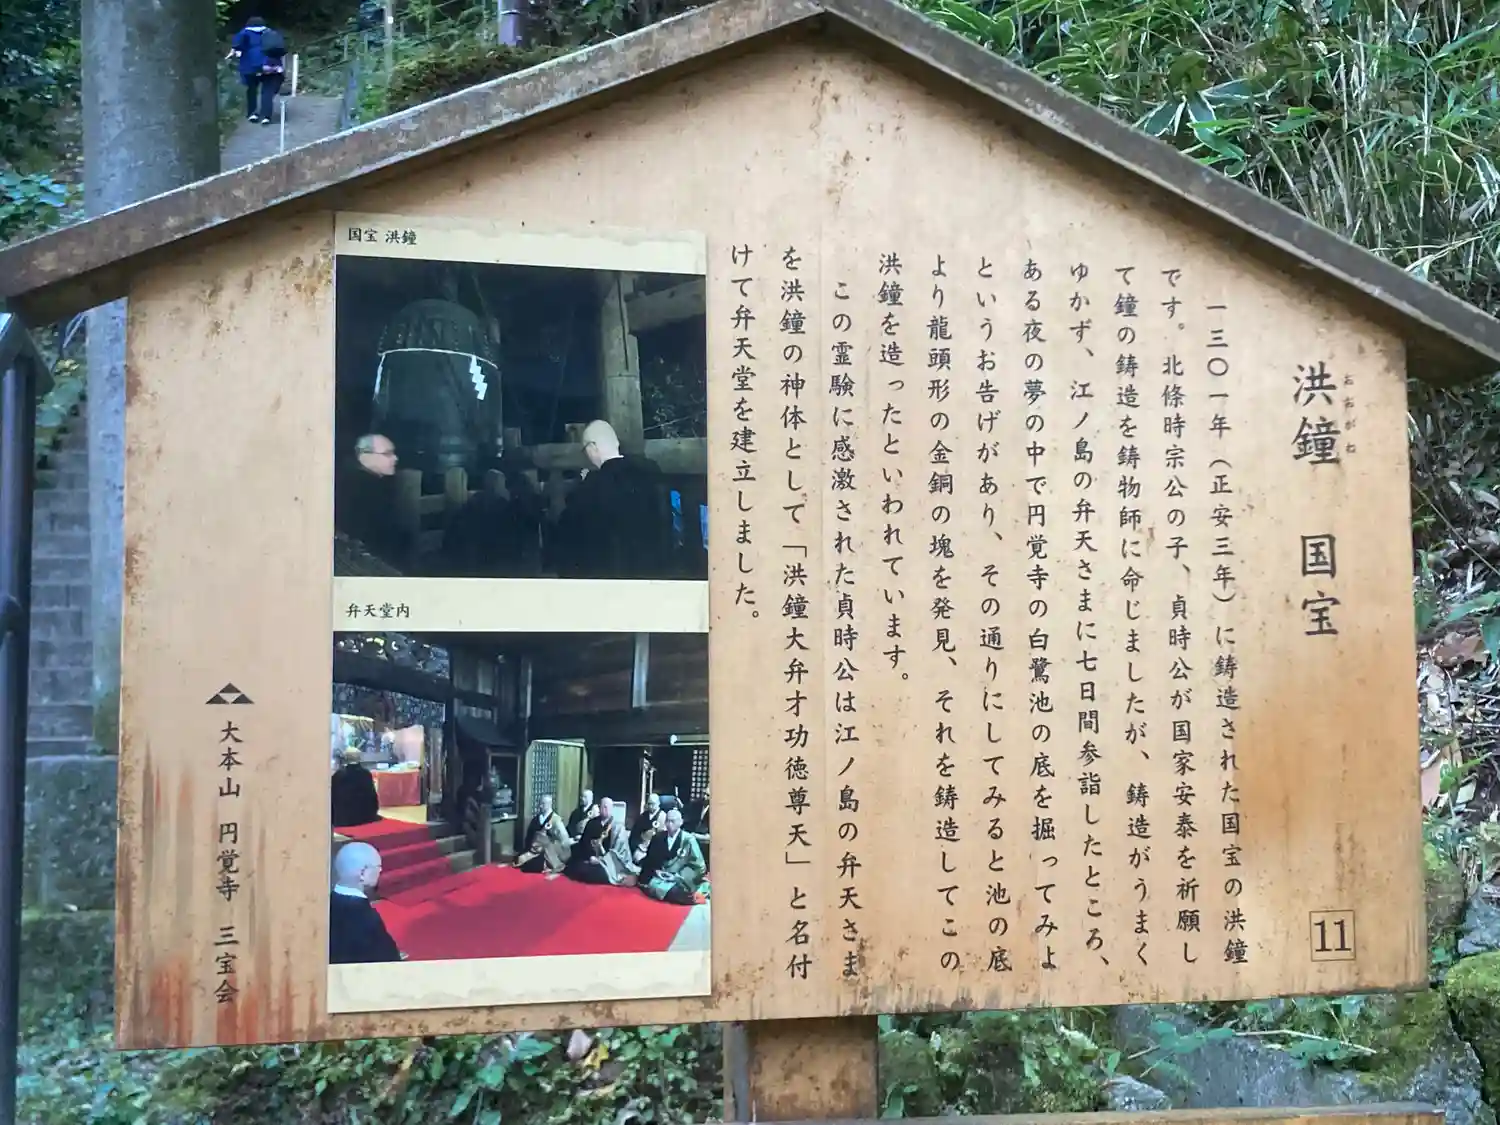 洪鐘 国宝
おおがね
一三〇一年（正安三年）に鋳造された国宝の洪鐘
です。北條時宗公の子、貞時公が国家安泰を祈願し
て鐘の鋳造を鋳物師に命じましたが、鋳造がうまく
ゆかず、江ノ島の弁天さまに七日間参詣したところ、
ある夜の夢の中で円覚寺の白鷺池の底を掘ってみよ
というお告げがあり、その通りにしてみると池の底
より龍頭形の金銅の塊を発見、それを鋳造してこの
洪鐘を造ったといわれています。
この霊験に感激された貞時公は江ノ島の弁天さま
を洪鐘の神体として「洪鐘大弁才功徳尊天」と名付
けて弁天堂を建立しました。
11
国宝 洪鐘
弁天堂内
大本山 円覚寺 三宝会